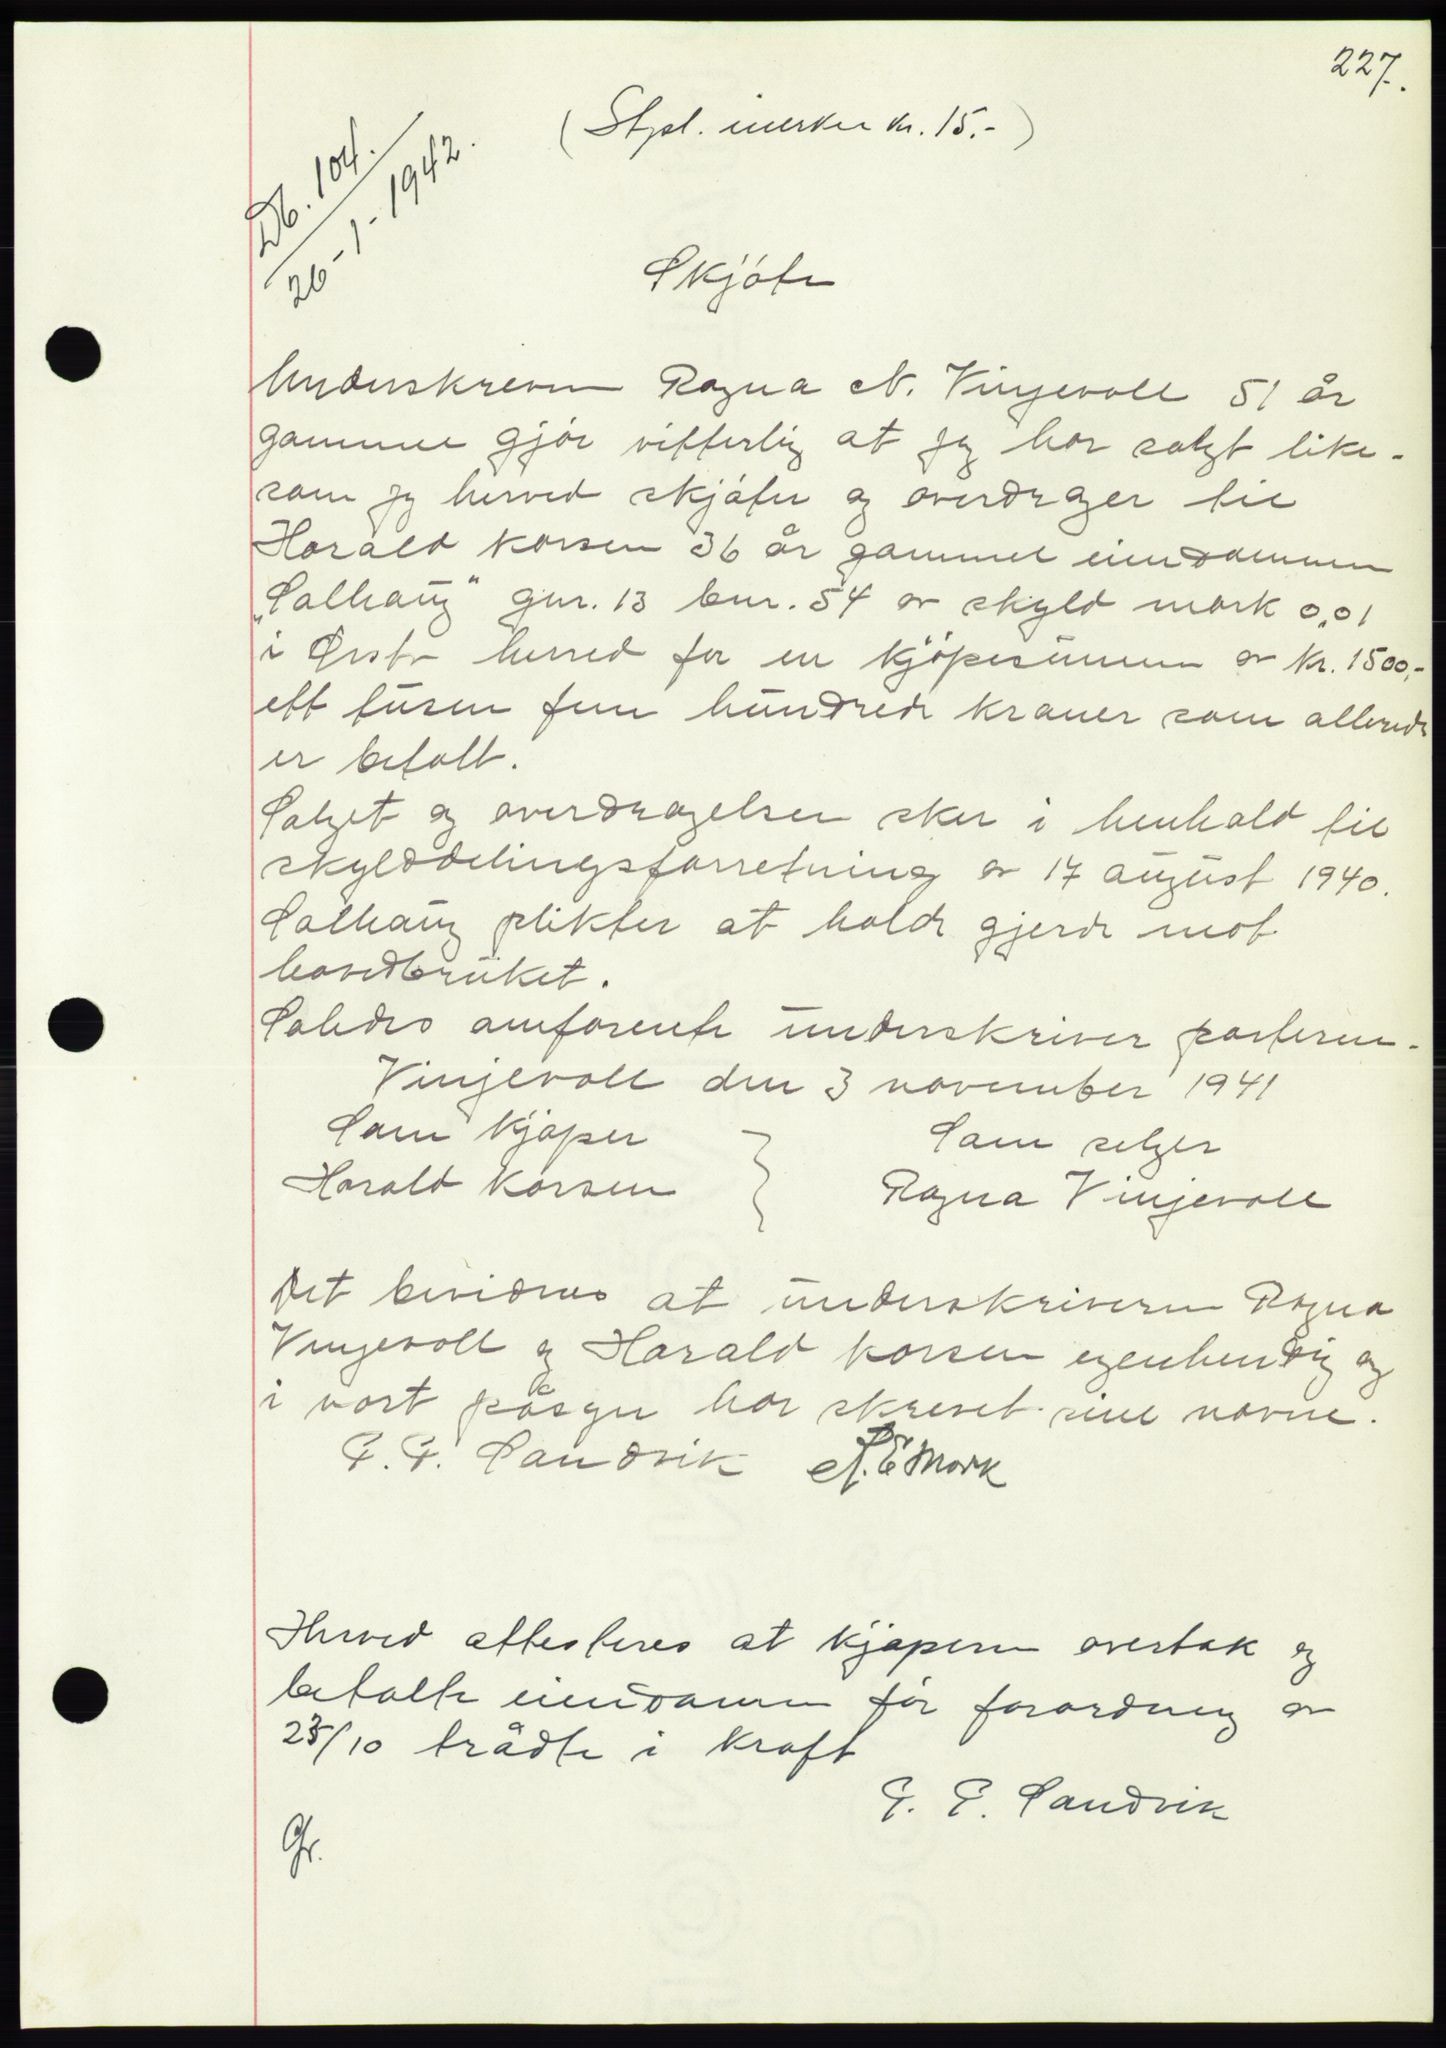 227.
(Stpl. merker kr. 15.-)
Db. 104.
26-1-1942.
Skjöte
Underskreven Ragna N. Vinjevoll 51 år
gammel gjör vitterlig at jeg har solgt like-
som jeg herved skjöter og överdrager til
Harald Korsen 36 år gammel eiendommen
"Solhaug" gnr. 13 bnr. 54 av skyld mark 0,01
i Ørsta herred for en kjöpesummen av kr. 1500,-
ett tusen fem hundrede kroner som allerede
er betalt.
Salget og overdragelsen sker i henhold til
skylddelingsforretning av 17 august 1940.
Solhaug plikter at holde gjerde mot
hovedbruket.
Således omforente underskriver parterne.
Vinjevoll den 3 november 1941
Som kjøper
Som selger
Harald Korsen
Ragna Vinjevoll
Det bevidnes at underskriverne Ragna
Vinjevoll og Harald Korsen egenhendig og
i vort påsyn har skrevet sine navne.
E. E. Sandvik N. E Mork
Herved attesteres at kjøperen overtok og
betalte eiendommen før forordning av
25/10 trådte i kraft
E. E. Sandvik
Gr.